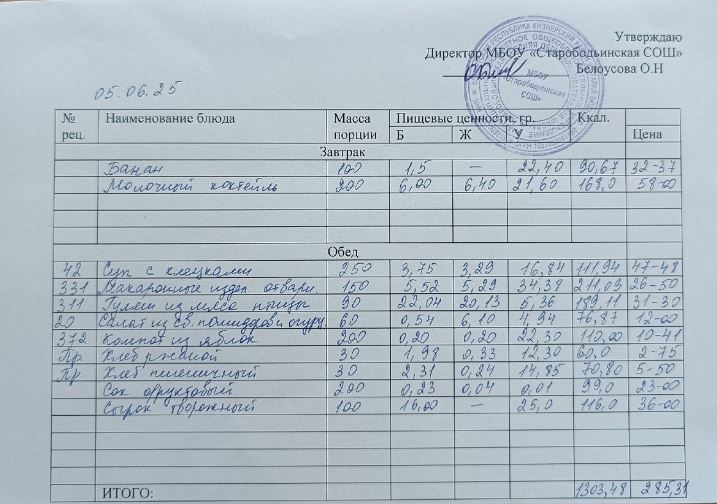 Утверждаю
Директор МБОУ «Старободьинская СОШ»
Белоусова О.Н
МБОУ «Старободьинская СОШ»
05.06.25
№ рец. Наименование блюда Масса порции Пищевые ценности, гр. Б Ж У Ккал. Цена
Завтрак
Банан 100 1,5 — 22,40 90,67 32-37
Молочный коктейль 200 6,00 6,40 21,60 168,0 58-00
Обед
42 Суп с клецками 250 3,75 3,29 16,84 111,94 47-48
331 Макаронные издел отварн 150 5,52 5,29 34,38 211,09 26-50
311 Гуляш из мяса птицы 90 22,04 20,13 5,36 189,11 31-30
20 Салат из св. помидоров и огурц. 60 0,54 6,10 4,94 76,87 12-00
372 Компот из яблок 200 0,20 0,20 22,30 110,00 10-41
Пр. Хлеб ржаной 30 1,98 0,33 12,30 60,0 2-75
Пр Хлеб пшеничный 30 2,31 0,24 14,85 70,80 5-50
Сок фруктовый 200 0,23 0,04 0,01 99,0 23-00
Сырок творожный 100 16,00 — 25,0 116,0 36-00
ИТОГО: 1303,48 285,31